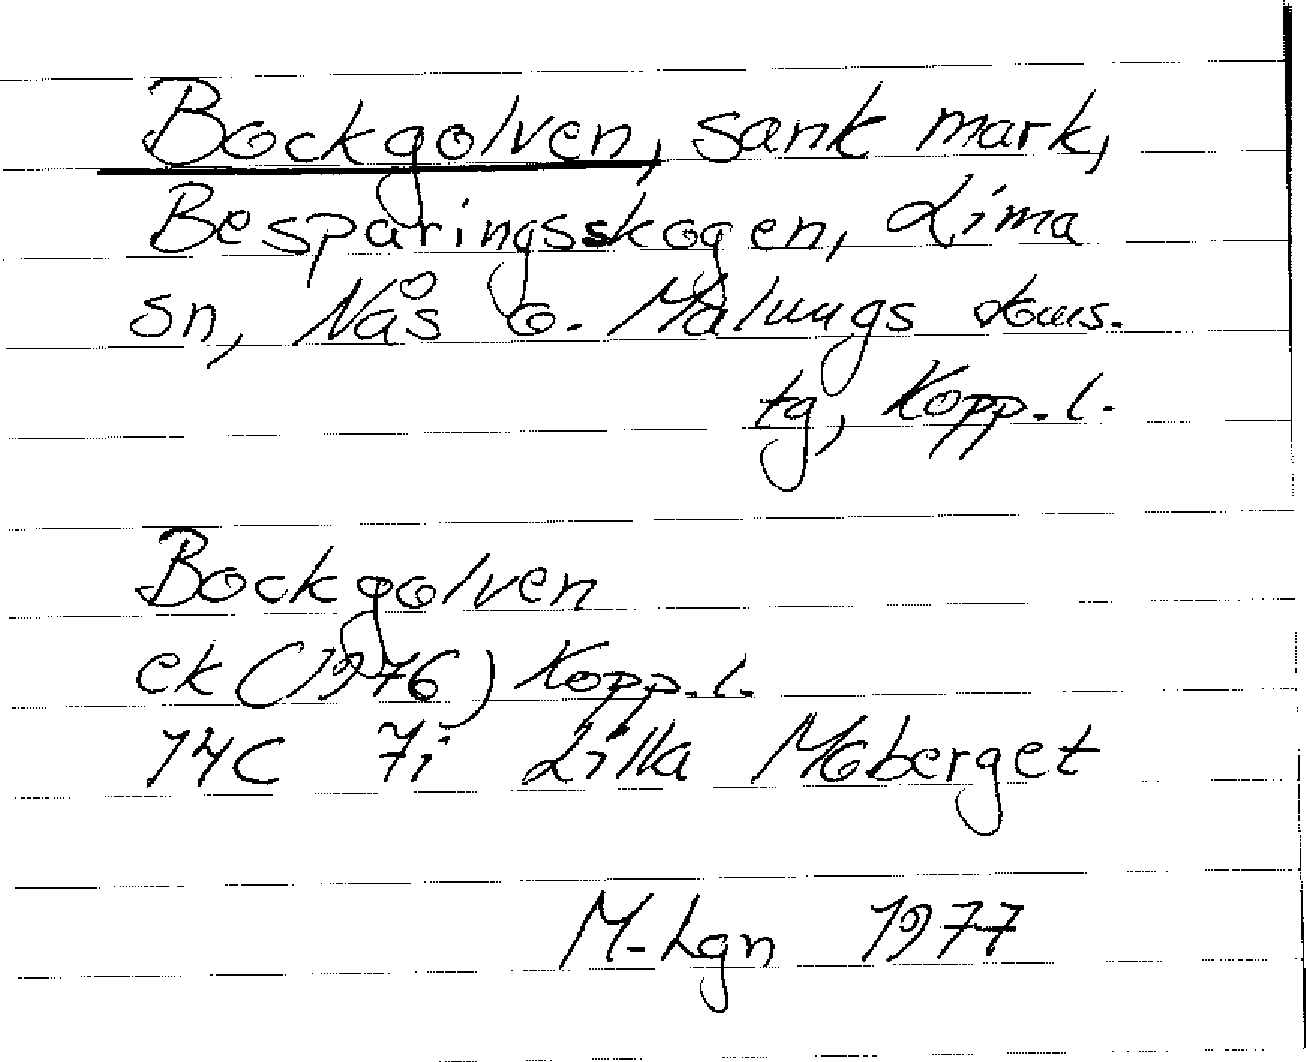 Bockgolven, sank mark,
Besparingsskogen, Lima
sn, Nås o. Malungs doms.
tg, Kopp. l.
Bockgolven
ek (1976) Kopp. l.
14C 7i Lilla Moberget
M-Lgn 1977